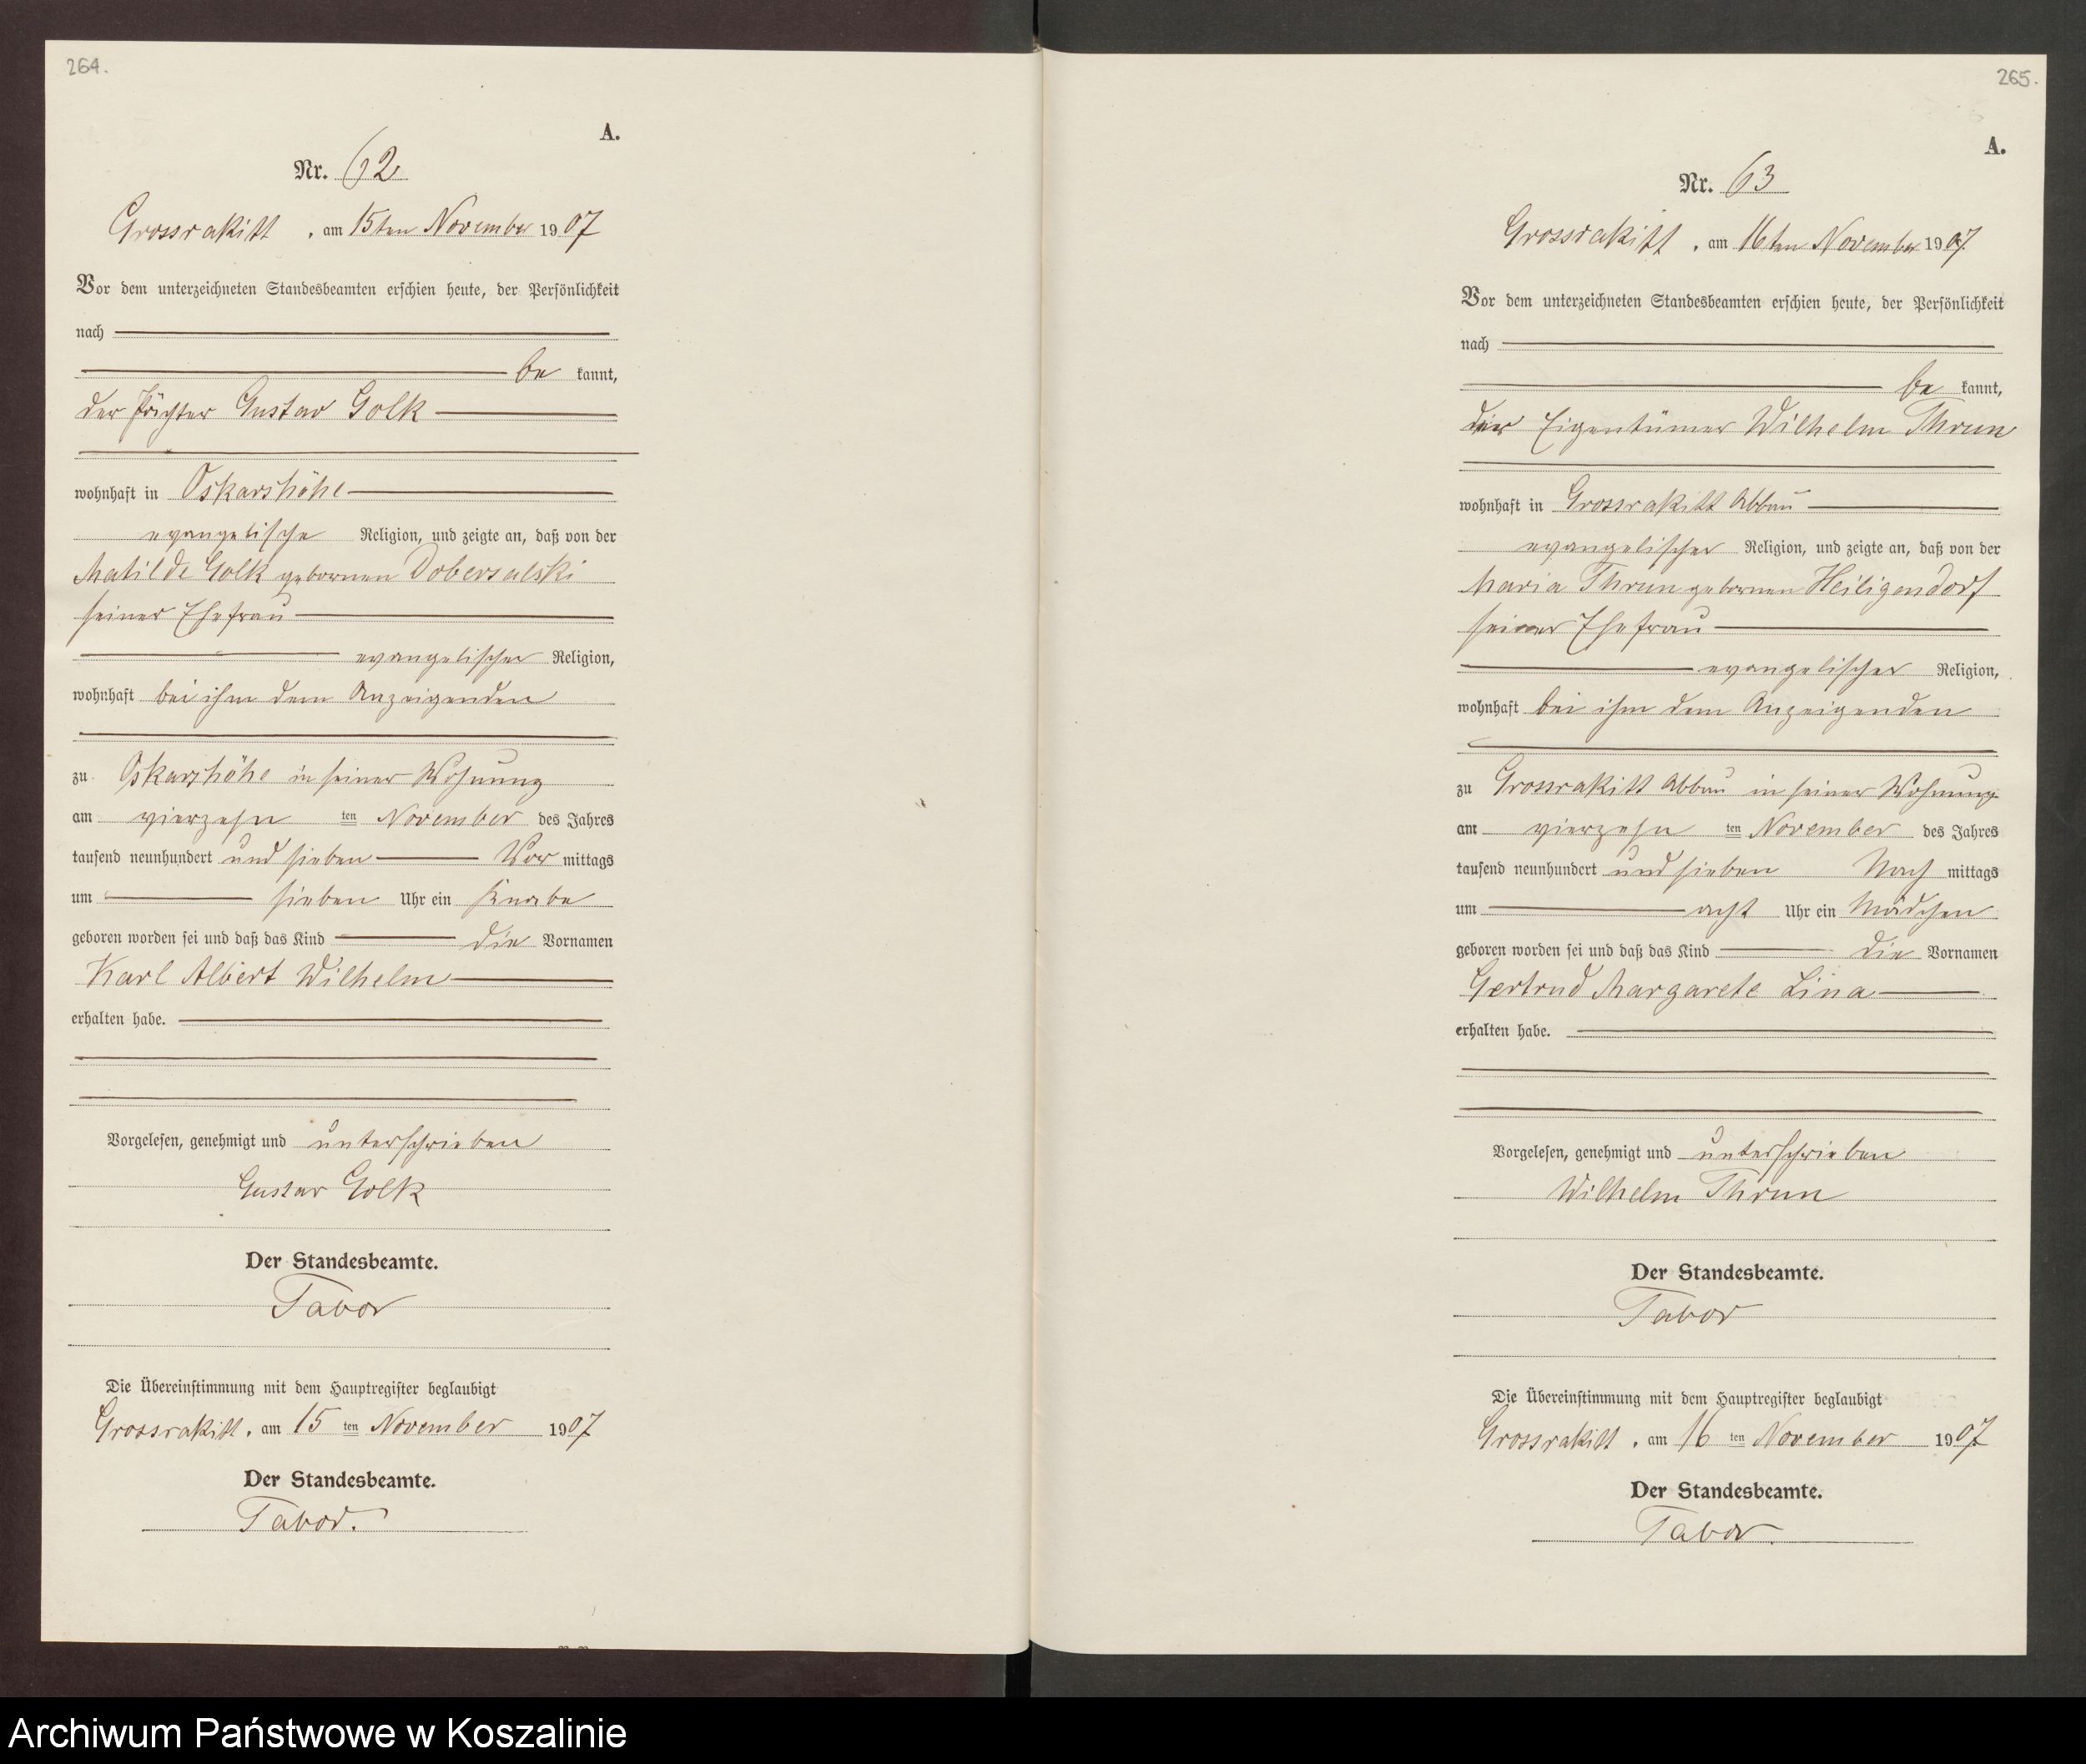 264.
A.
Nr. 62
Grossrakitt, am 15ten November 1907
Vor dem unterzeichneten Standesbeamten erschien heute, der Persönlichkeit
nach
be kannt,
der Pächter Gustav Golk
wohnhaft in Oskarshöhe
evangelische Religion, und zeigte an, daß von der
Matilde Golk gebornen Dobersalski
seiner Ehefrau
evangelischer Religion,
wohnhaft bei ihm dem Anzeigenden
zu Oskarshöhe in seiner Wohnung
am vierzehn ten November des Jahres
tausend neunhundert und sieben Vor mittags
um sieben Uhr ein Knabe
geboren worden sei und daß das Kind die Vornamen
Karl Albert Wilhelm
erhalten habe.
Vorgelesen, genehmigt und unterschrieben
Gustav Golk
Der Standesbeamte.
Tabor
Die Übereinstimmung mit dem Hauptregister beglaubigt
Grossrakitt, am 15 ten November 1907
Der Standesbeamte.
Tabor.
265.
A.
Nr. 63
Grossrakitt, am 16ten November 1907
Vor dem unterzeichneten Standesbeamten erschien heute, der Persönlichkeit
nach
be kannt,
der Eigentümer Wilhelm Thrun
wohnhaft in Grossrakitt Abbau
evangelischer Religion, und zeigte an, daß von der
Maria Thrun gebornen Heiligendorf
seiner Ehefrau
evangelischer Religion,
wohnhaft bei ihm dem Anzeigenden
zu Grossrakitt Abbau in seiner Wohnung
am vierzehn ten November des Jahres
tausend neunhundert und sieben Nach mittags
um acht Uhr ein Mädchen
geboren worden sei und daß das Kind die Vornamen
Gertrud Margarete Lina
erhalten habe.
Vorgelesen, genehmigt und unterschrieben
Wilhelm Thrun
Der Standesbeamte.
Tabor
Die Übereinstimmung mit dem Hauptregister beglaubigt
Grossrakitt, am 16 ten November 1907
Der Standesbeamte.
Tabor.
Archiwum Państwowe w Koszalinie